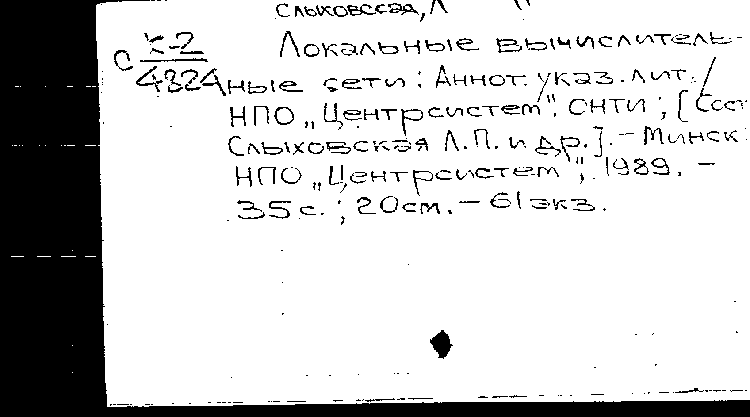 Слыховская, Л
С К-2 Локальные вычислитель-
4824 ные сети: Аннот. указ. лит. /
НПО „Центрсистем", ОНТИ; [Сост.
Слыховская Л.П. и др.]. – Минск:
НПО „Центрсистем", 1989. –
35 с.; 20 см. – 61 экз.